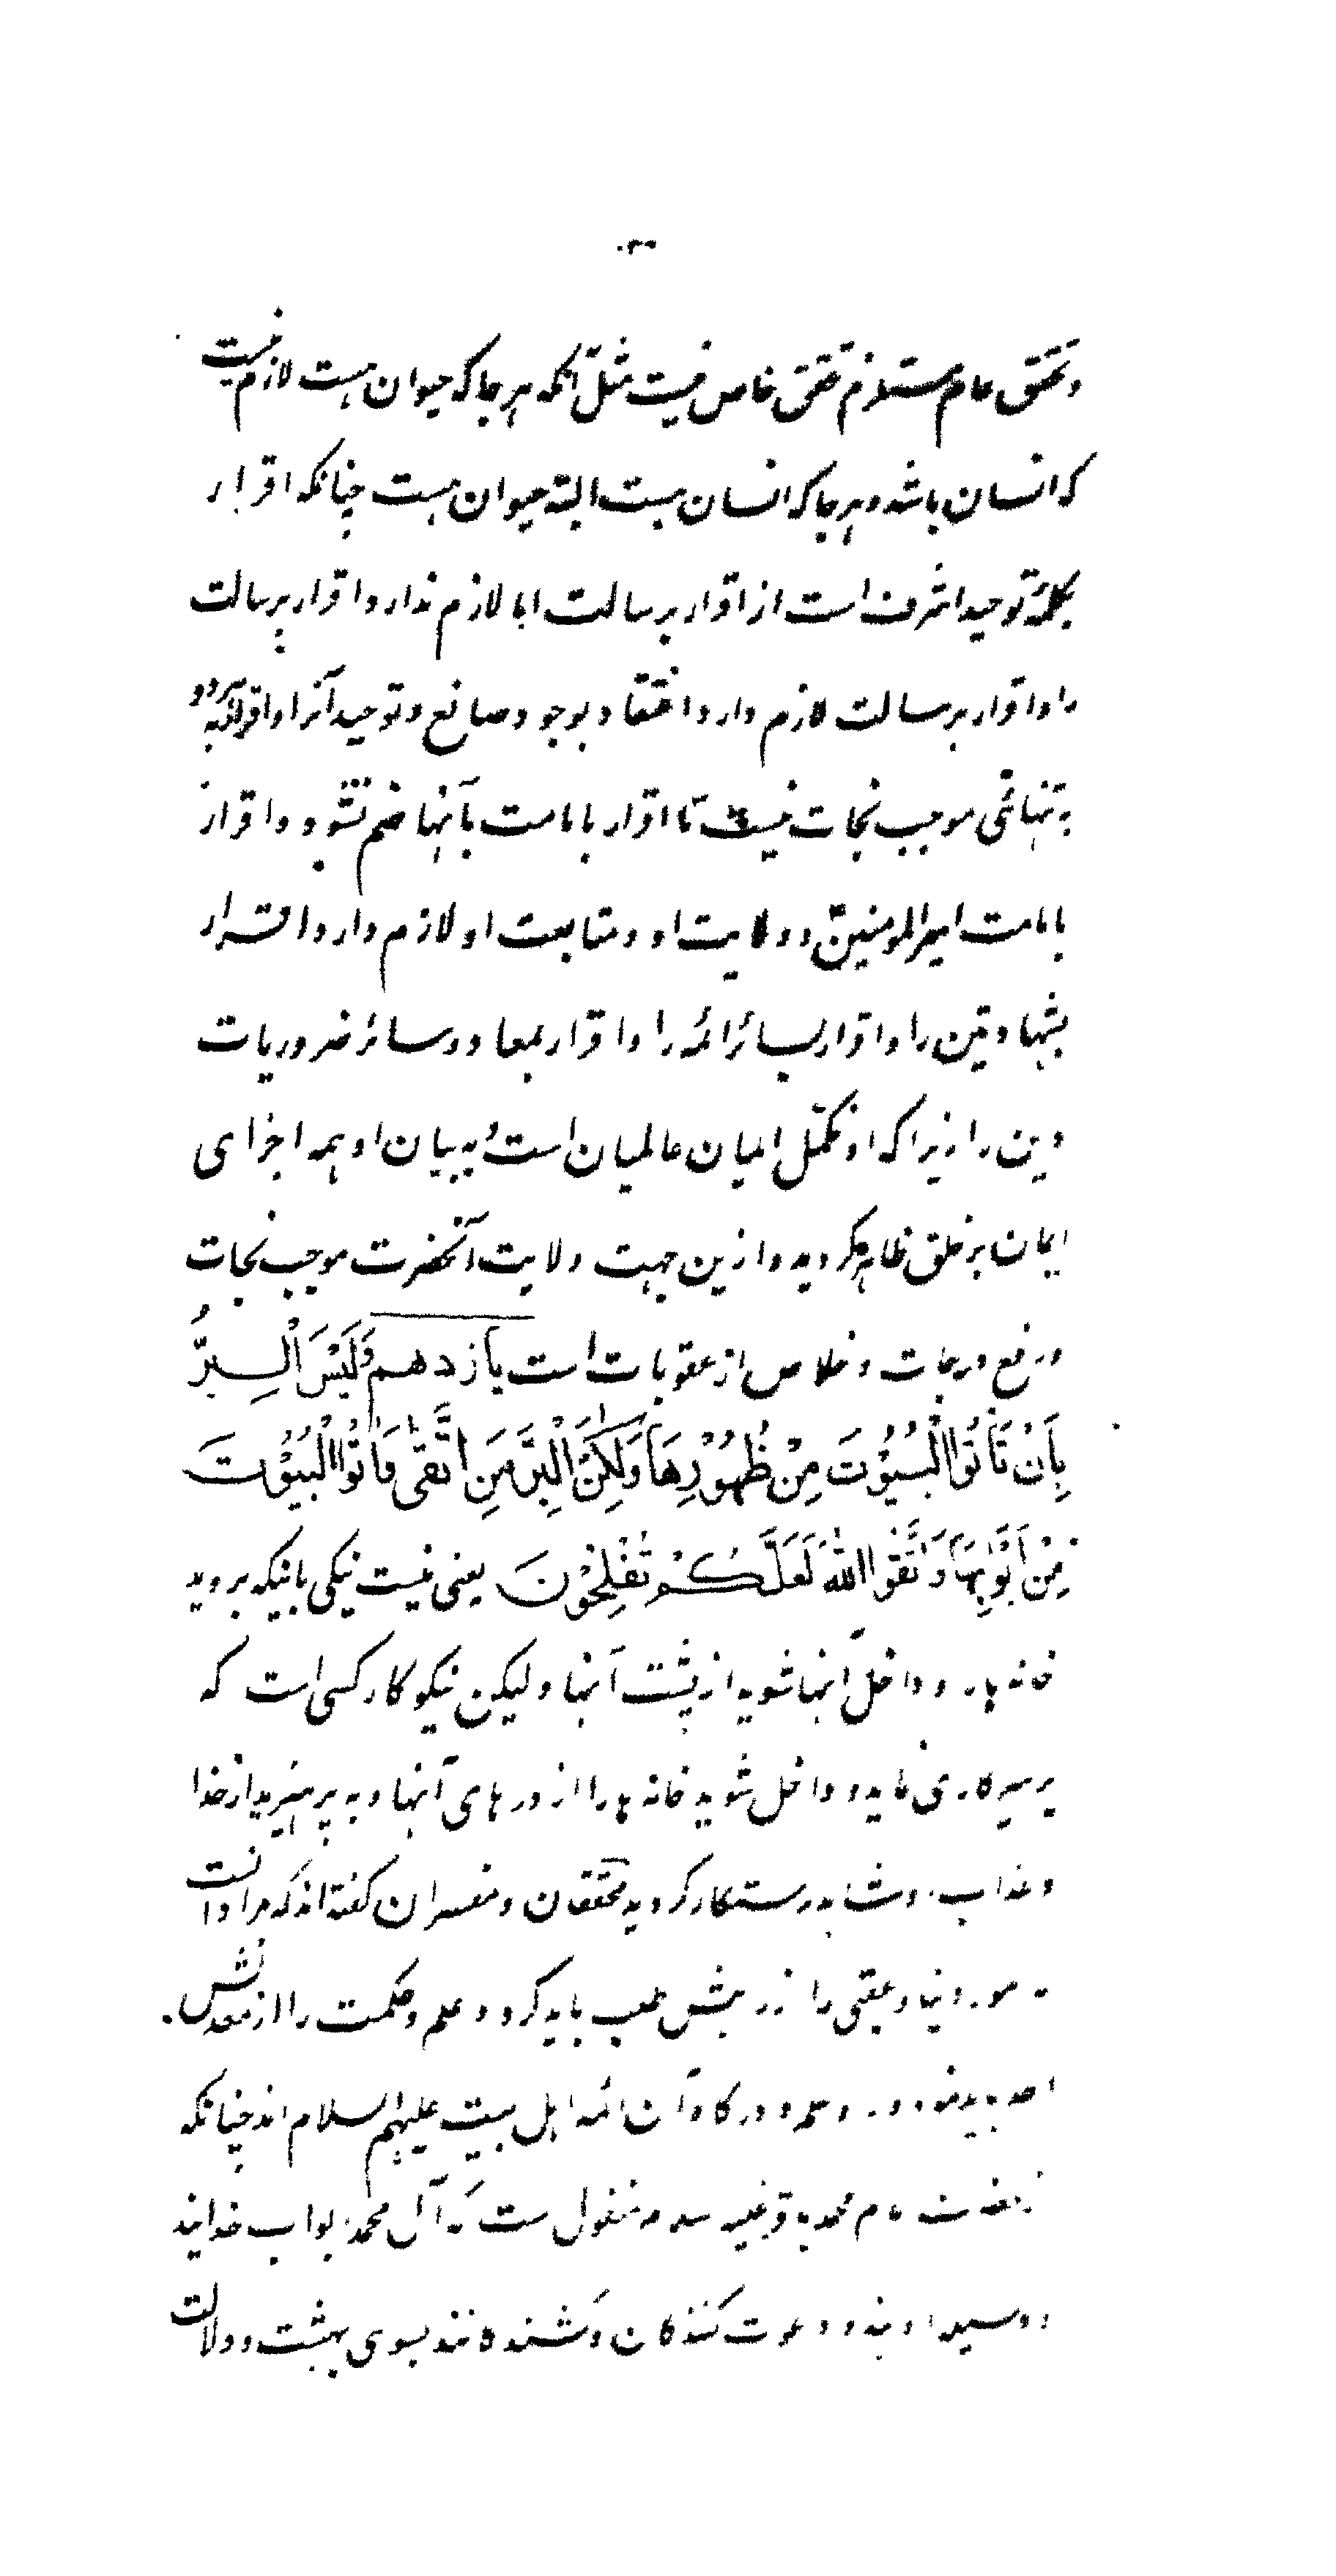 و تحقق عام مستلزم تحقق خاص نیست مثل آنکه هر جا که حیوان هست لازم نیست
که انسان باشد و هر جا که انسان هست البته حیوان هست چنانکه اقرار
بکلمه توحید اشرف است از اقرار برسالت اما لازم ندارد اقرار برسالت
را و اقرار برسالت لازم دارد اعتقاد بوجود صانع و توحید آنرا و اقرار
به تنهائی موجب نجات نیست تا اقرار بامامت بآنها ضم نشود و اقرار
بامامت امیرالمومنین و ولایت او و متابعت او لازم دارد اقرار
بشهادتین را و اقرار بسائر ائمه را و اقرار بمعاد و سائر ضروریات
دین را زیرا که او مکمل ایمان عالمیان است و به بیان او همه اجزای
ایمان بر خلق ظاهر گردیده و ازین جهت ولایت آنحضرت موجب نجات
و رفع درجات و خلاص از عقوبات است یازدهم وَلَیْسَ الْبِرُّ
بِاَنْ تَاْتُوا الْبُیُوْتَ مِنْ ظُهُوْرِهَا وَلٰکِنَّ الْبِرَّ مَنِ اتَّقٰی وَاْتُوا الْبُیُوْتَ
مِنْ اَبْوَابِهَا وَاتَّقُوا اللّٰهَ لَعَلَّکُمْ تُفْلِحُوْنَ یعنی نیست نیکی باینکه بروید
خانها و داخل آنها شوید از پشت آنها و لیکن نیکوکار کسی است که
پرهیزکاری نماید و داخل شوید خانه ها را از درهای آنها و به پرهیزید از خدا
و عذاب او شاید رستگار گردید محققان و مفسران گفته اند که مراد آنست
امور دنیا و عقبی را از طلب باید کرد و علم و حکمت را از معدنش
و درگاه آن ائمه اهل بیت علیهم السلام اند چنانکه
امام محمد باقر علیه السلام منقول ست که آل محمد ابواب خدایند
و وسیله او یند و دعوت کنندگان و کشنده گانند بسوی بهشت و دلالت